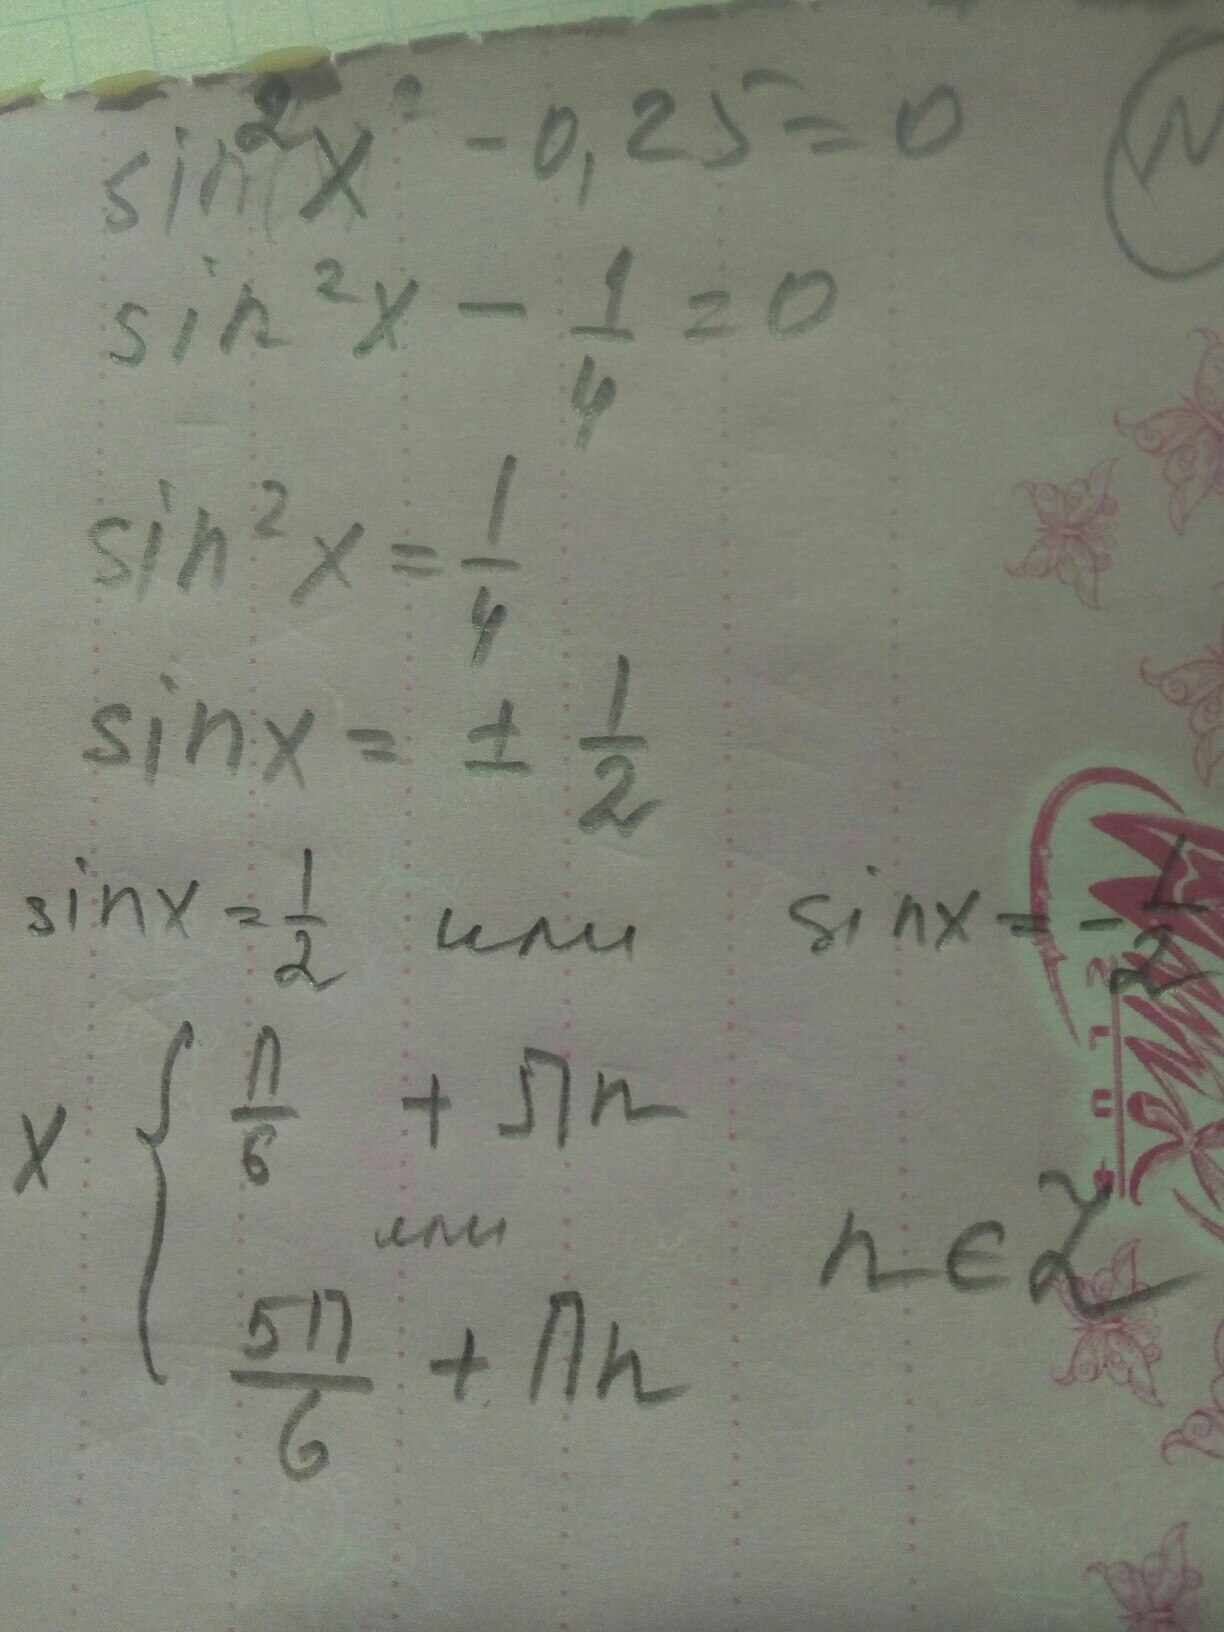 sin²x - 0,25 = 0
N
sin²x - 1/4 = 0
sin²x = 1/4
sinx = ± 1/2
sinx = 1/2 или sinx = - 1/2
x { π/6 + πn
или
n ∈ Z
5π/6 + πn